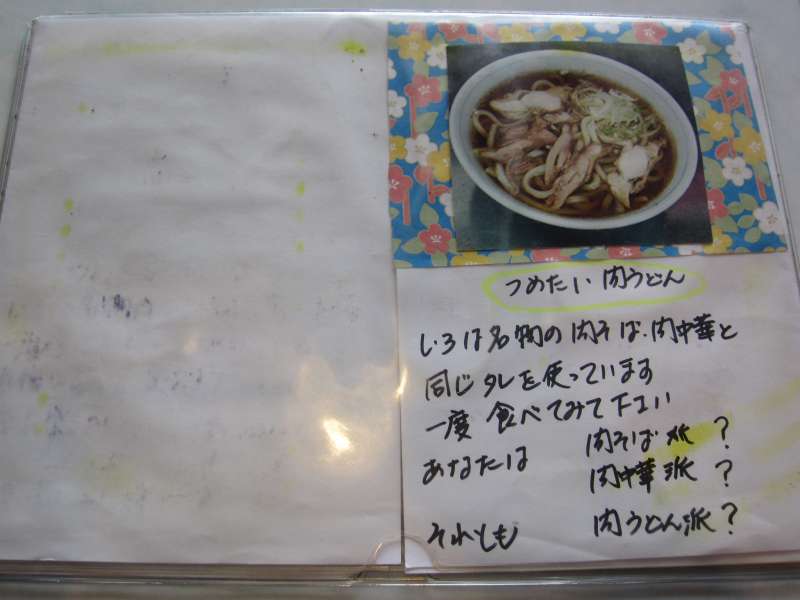 つめたい肉うどん
いろは名物の肉そば・肉中華と
同じタレを使っています
一度 食べてみて下さい
あなたは 肉そば派?
肉中華派?
それとも 肉うどん派?